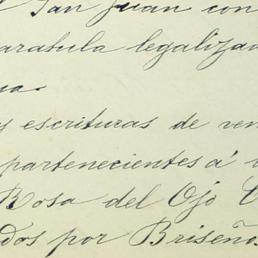 San Juan con
legalizad
y escrituras de ven
partenecientes á
Rosa del Ojo
dos por Briseño